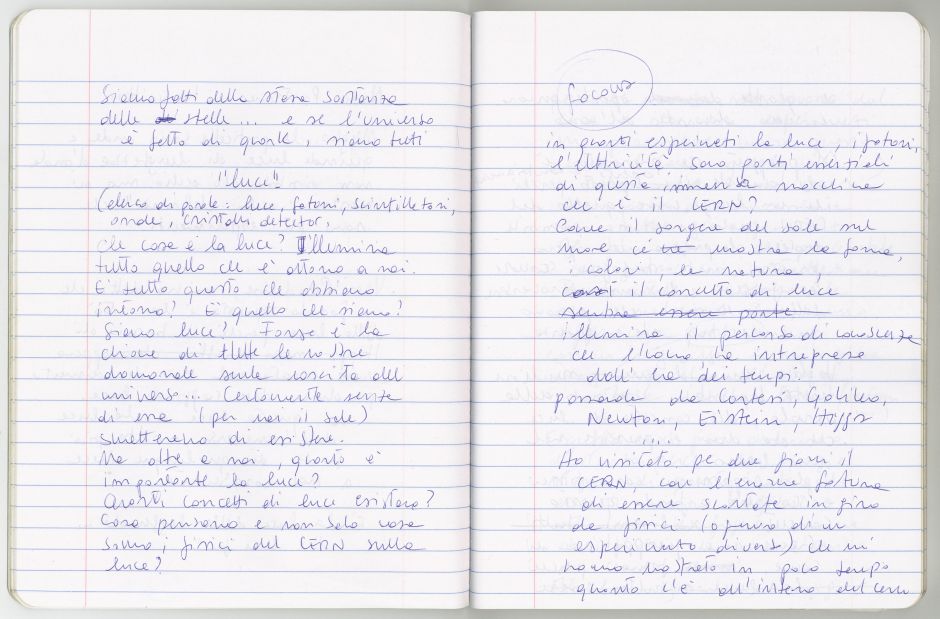 Siamo fatti della stessa sostanza
delle stelle... e se l'universo
è fatto di quark, siamo tutti
"luce"
(elenco di parole: luce, fotoni, scintillatori,
onde, cristalli detector.
Che cosa è la luce? Illumina
tutto quello che è attorno a noi.
E tutto questo che abbiamo
intorno? E quello che siamo?
Siamo luce? Forse è la
chiave di tutte le nostre
domande sulla nascita del
universo... Certamente senza
di essa (per noi il sole)
smetteremo di esistere.
Ma oltre a noi, quanto è
importante la luce?
Quanti concetti di luce esistono?
Cosa pensano e non solo cosa
sanno i fisici del CERN sulla
luce?
focauss
in quanti esperimenti la luce, i fotoni,
l'elettricità sono parti essenziali
di questa immensa macchina
che è il CERN?
Come il sorgere del sole sul
mare ci mostra la forma,
i colori, la natura
così il concetto di luce
sembra essere parte
illumina il percorso di conoscenza
che l'uomo ha intrapreso
dall'ora dei tempi,
passando da Cartesi, Galileo,
Newton, Eistein, Higgs
....
Ho visitato pe due giorni il
CERN, con l'enorme fortuna
di essere scortata in giro
da fisici (ognuno di un
esperimento diverso) che mi
hanno mostrato in poco tempo
quanto c'è all'interno del cern